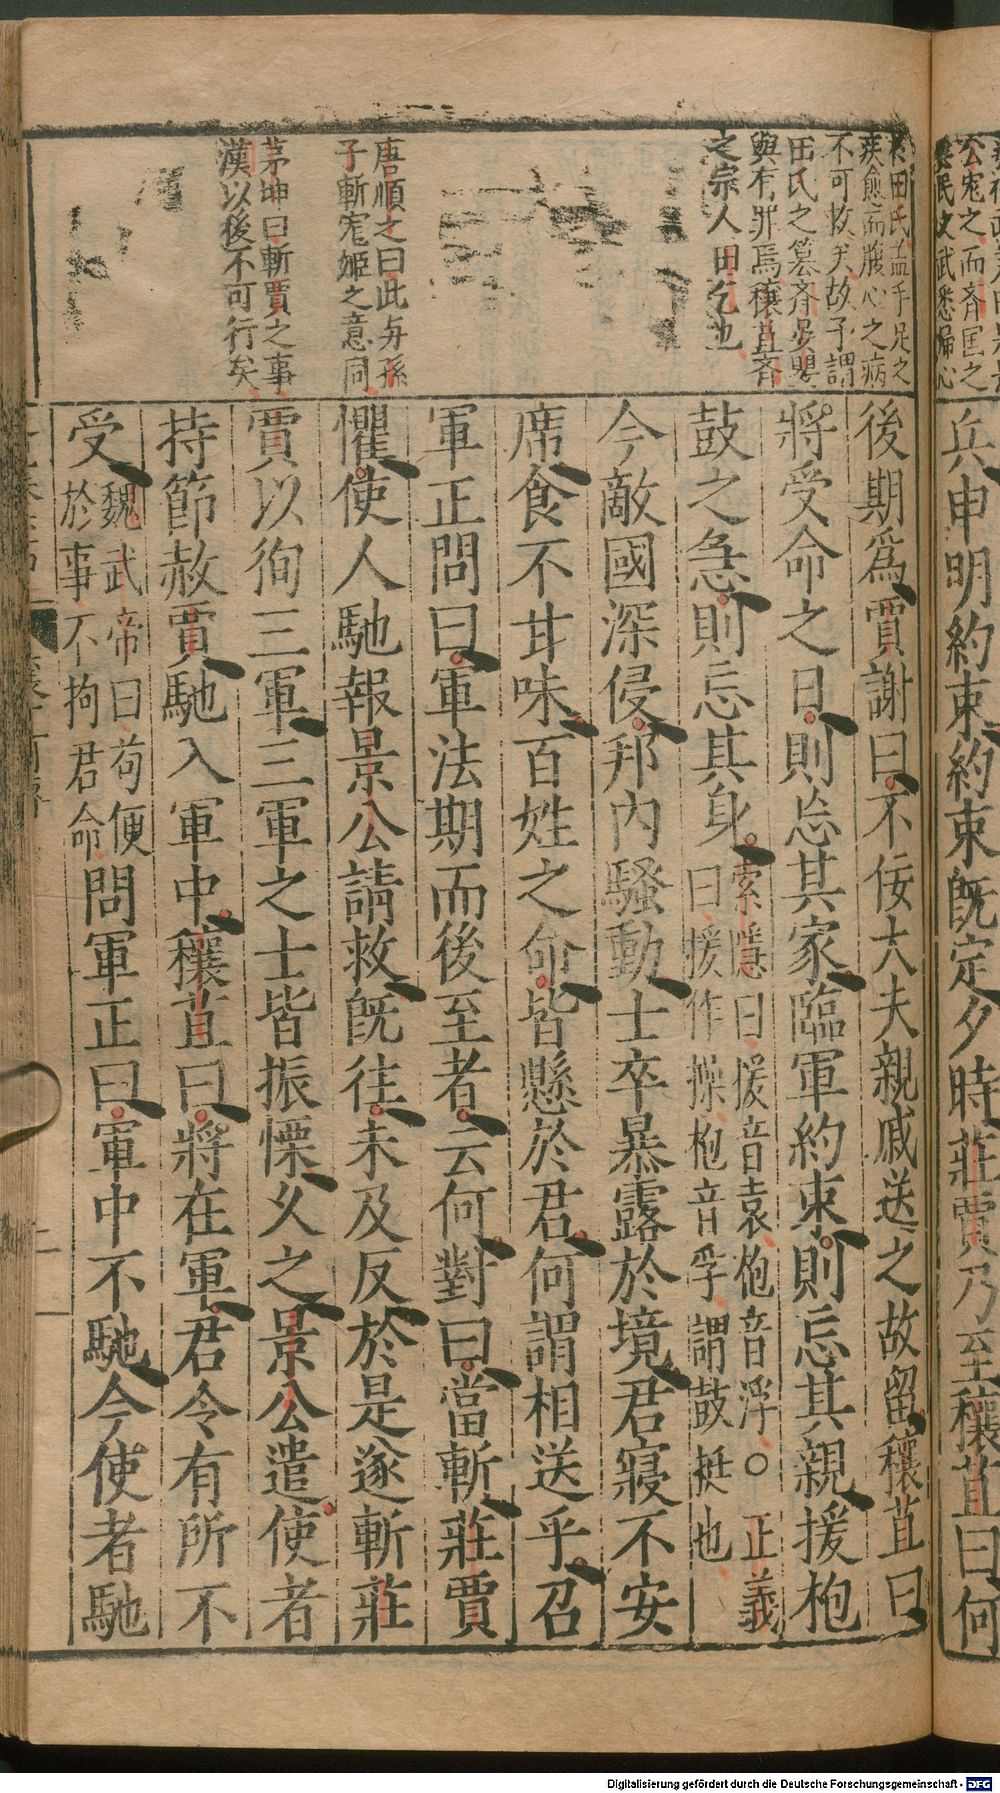 兵申明約束約束既定夕時莊賈乃至穰苴曰何
後期爲賈謝曰不佞大夫親戚送之故留穰苴曰
將受命之日則忘其家臨軍約束則忘其親援枹
鼓之急則忘其身索隱曰援音袁枹音浮○正義
曰援作操枹音孚謂鼓挺也
今敵國深侵邦內騷動士卒暴露於境君寢不安
席食不甘味百姓之命皆懸於君何謂相送乎召
軍正問曰軍法期而後至者云何對曰當斬莊賈
懼使人馳報景公請救既往未及反於是遂斬莊
賈以徇三軍三軍之士皆振慄久之景公遣使者
持節赦賈馳入軍中穰苴曰將在軍君令有所不
受魏武帝曰苟便
於事不拘君命問軍正曰軍中不馳今使者馳
公寃之而齊国之
民文武悉歸心
田氏蓋手足之
疾愈而腹心之病
不可救矣故予謂
田氏之簒齊晏嬰
與有罪焉穰苴齊
之宗人田乞也
唐順之曰此与孫
子斬寵姬之意同
茅坤曰斬賈之事
漢以後不可行矣
Digitalisierung gefördert durch die Deutsche Forschungsgemeinschaft - DFG